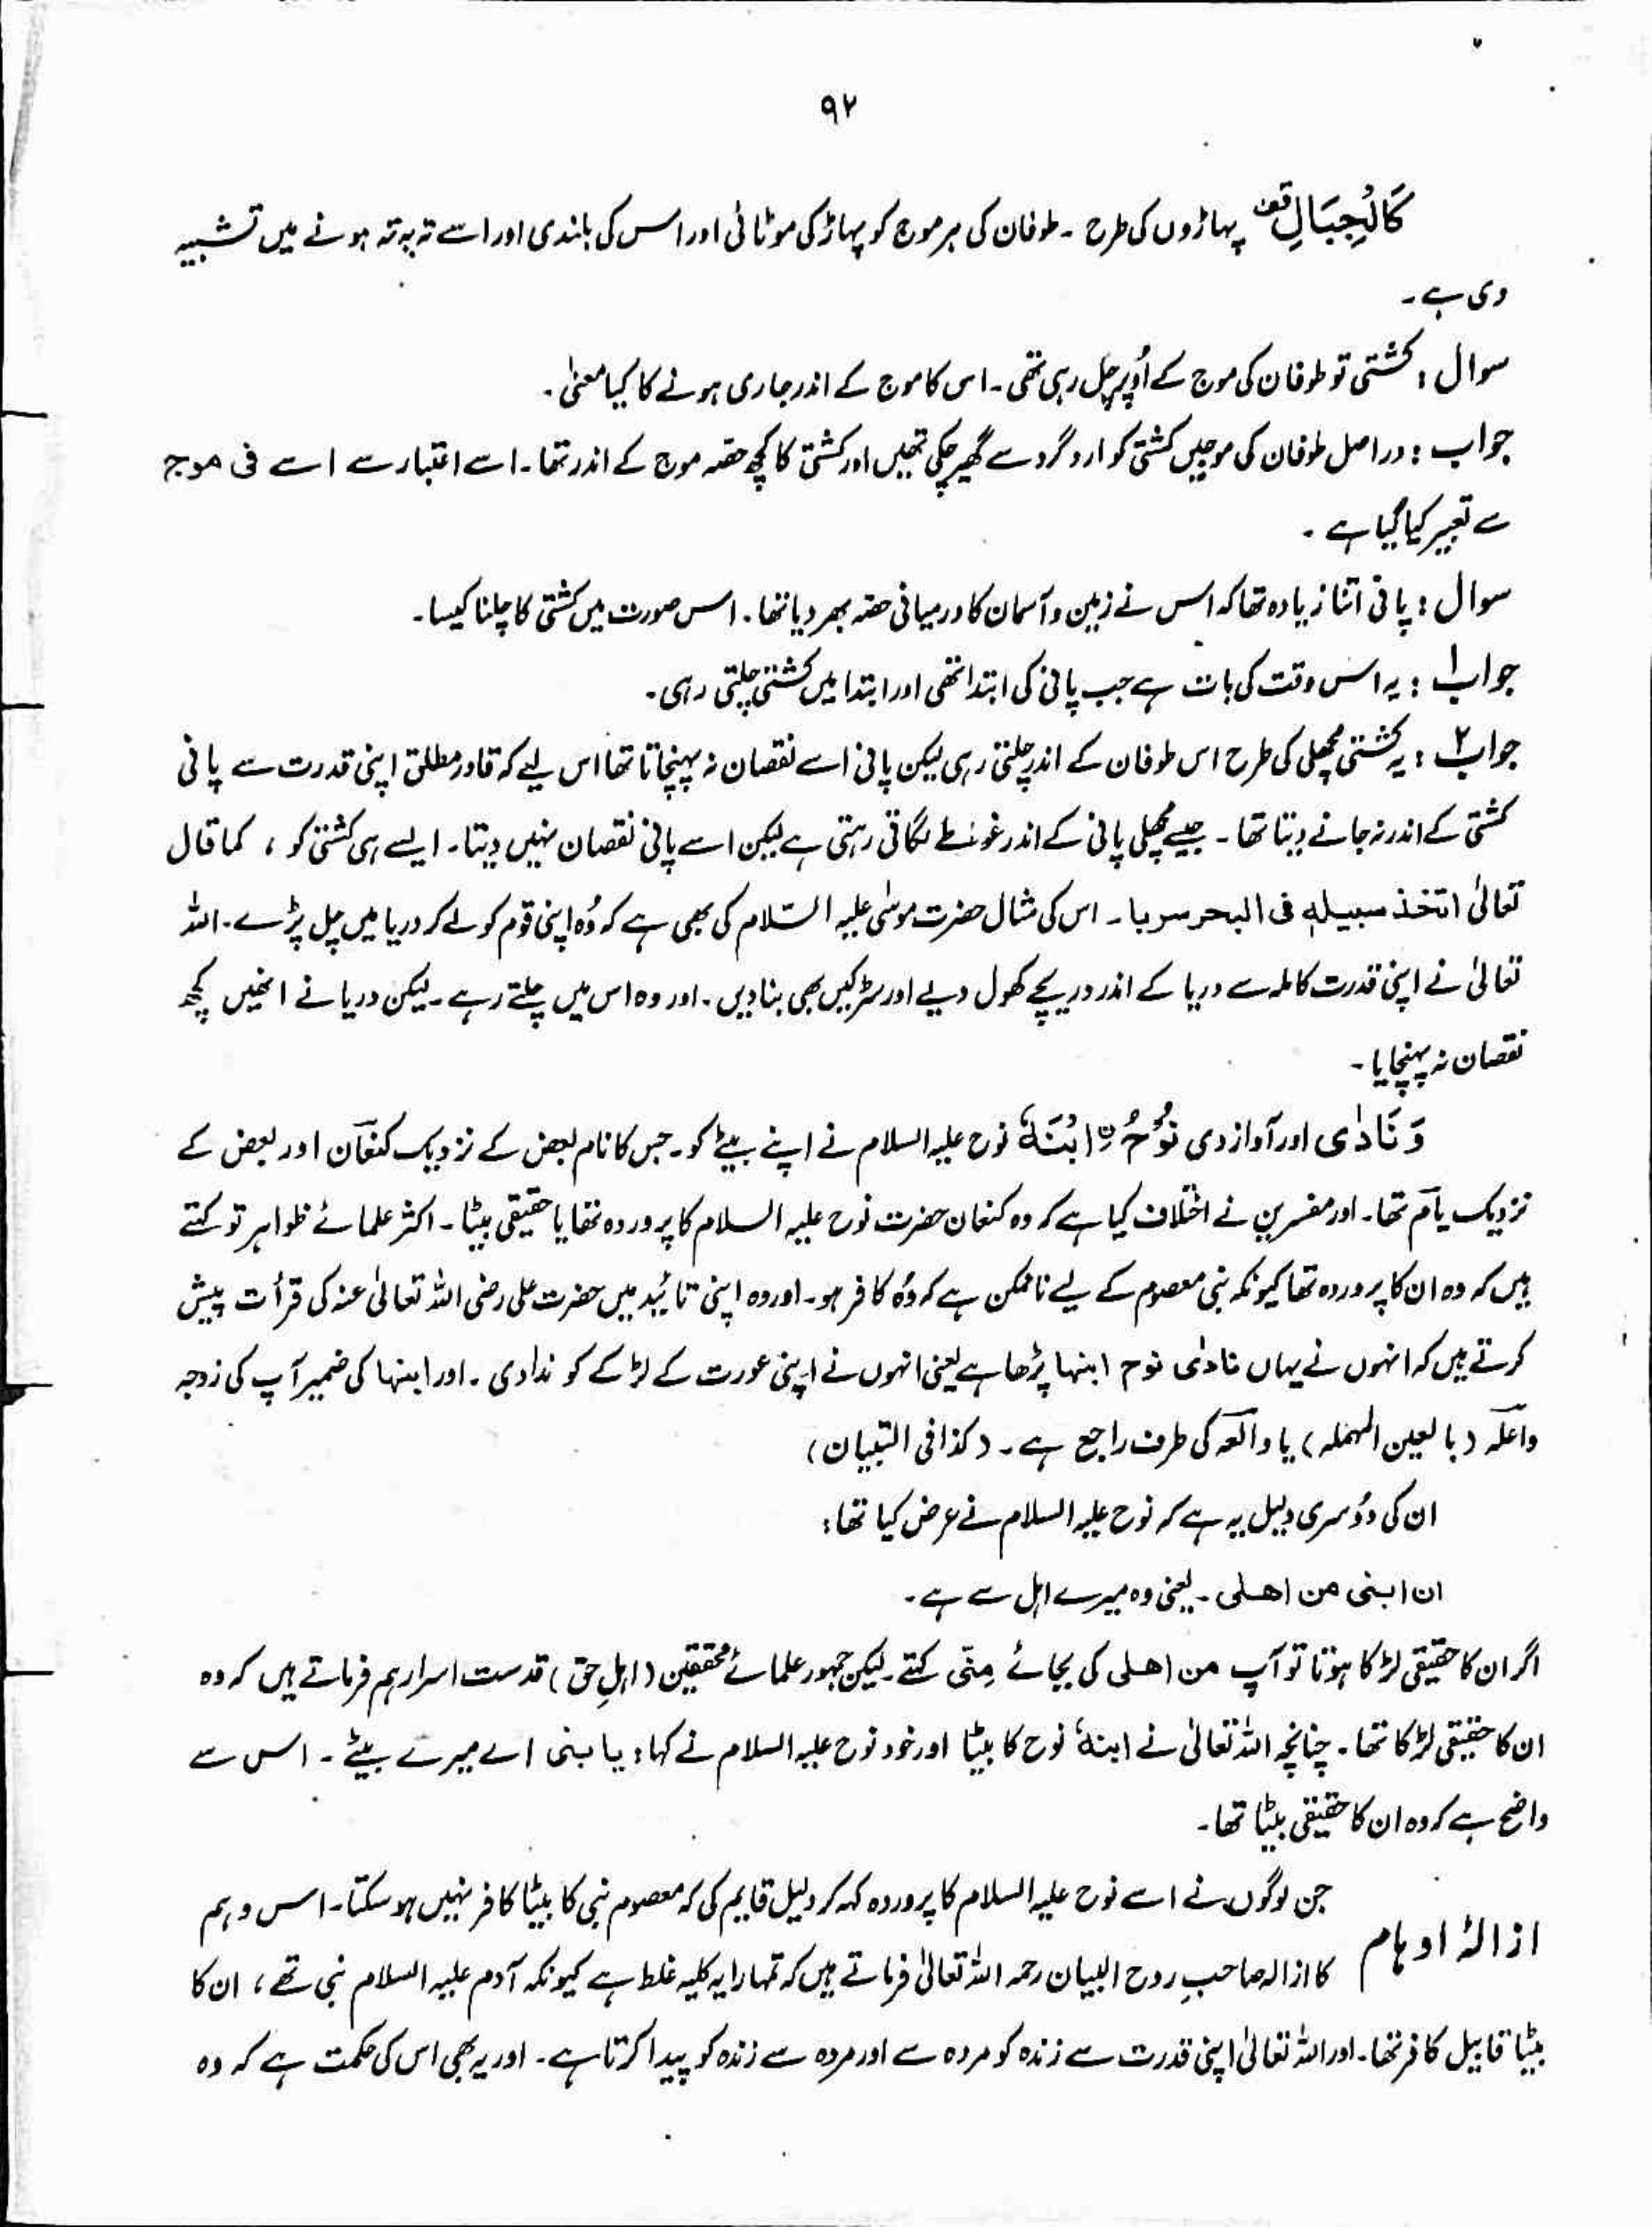 ۹۲
كَالْجِبَالِ قف پہاڑوں کی طرح ۔ طوفان کی ہر موج کو پہاڑ کی موٹائی اور اس کی بلندی اور اسے تہ بہ تہ ہونے میں تشبیہ
دی ہے ۔
سوال : کشتی تو طوفان کی موج کے اُوپر چل رہی تھی ۔ اس کا موج کے اندر جاری ہونے کا کیا معنیٰ ۔
جواب : دراصل طوفان کی موجیں کشتی کو ارد گرد سے گھیر چکی تھیں اور کشتی کا کچھ حصہ موج کے اندر تھا ۔ اسے اعتبار سے اسے فی موج
سے تعبیر کیا گیا ہے ۔
سوال : پانی اتنا زیادہ تھا کہ اس نے زمین و آسمان کا درمیانی حصہ بھر دیا تھا ۔ اس صورت میں کشتی کا چلنا کیسا ۔
جواب۱ : یہ اس وقت کی بات ہے جب پانی کی ابتدا تھی اور ابتدا میں کشتی چلتی رہی ۔
جواب۲ : یہ کشتی مچھلی کی طرح اس طوفان کے اندر چلتی رہی لیکن پانی اسے نقصان نہ پہنچاتا تھا اس لیے کہ قادر مطلق اپنی قدرت سے پانی
کشتی کے اندر نہ جانے دیتا تھا ۔ جیسے مچھلی پانی کے اندر غوطے لگاتی رہتی ہے لیکن اسے پانی نقصان نہیں دیتا ۔ ایسے ہی کشتی کو ، کما قال
تعالیٰ اتخذ سبیلہٖ فی البحر سربا ۔ اس کی مثال حضرت موسٰی علیہ السّلام کی بھی ہے کہ وُہ اپنی قوم کو لے کر دریا میں چل پڑے ۔ اللہ
تعالیٰ نے اپنی قدرت کاملہ سے دریا کے اندر دریچے کھول دیے اور سڑکیں بھی بنا دیں ۔ اور وہ اس میں چلتے رہے ۔ لیکن دریا نے انھیں کچھ
نقصان نہ پہنچایا ۔
وَ نَادٰی اور آواز دی نُوْحُ ِۨ ابْنَهٗ نوح علیہ السلام نے اپنے بیٹے کو ۔ جس کا نام بعض کے نزدیک کنعان اور بعض کے
نزدیک یام تھا ۔ اور مفسرین نے اختلاف کیا ہے کہ وہ کنعان حضرت نوح علیہ السلام کا پروردہ تھا یا حقیقی بیٹا ۔ اکثر علمائے ظواہر تو کہتے
ہیں کہ وہ ان کا پروردہ تھا کیونکہ نبی معصوم کے لیے ناممکن ہے کہ وُہ کافر ہو ۔ اور وہ اپنی تائید میں حضرت علی رضی اللہ تعالیٰ عنہ کی قرأت پیش
کرتے ہیں کہ انہوں نے یہاں نادٰی نوح ابنہا پڑھا ہے یعنی انہوں نے اپنی عورت کے لڑکے کو ندا دی ۔ اور ابنہا کی ضمیر آپ کی زوجہ
واعلہ ( بالعین المہملہ ) یا والعہ کی طرف راجع ہے ۔ ( کذا فی التبیان )
ان کی دوُسری دلیل یہ ہے کہ نوح علیہ السلام نے عرض کیا تھا :
ان ابنی من اھلی ۔ یعنی وہ میرے اہل سے ہے ۔
اگر ان کا حقیقی لڑکا ہوتا تو آپ من اھلی کی بجائے مِنّی کہتے ۔ لیکن جمہور علمائے محققین ( اہلِ حق ) قدست اسرارہم فرماتے ہیں کہ وہ
ان کا حقیقی لڑکا تھا ۔ چنانچہ اللہ تعالیٰ نے ابنهٗ نوح کا بیٹا اور خود نوح علیہ السلام نے کہا : یا بنی اے میرے بیٹے ۔ اس سے
واضح ہے کہ وہ ان کا حقیقی بیٹا تھا ۔
جن لوگوں نے اسے نوح علیہ السلام کا پروردہ کہہ کر دلیل قایم کی کہ معصوم نبی کا بیٹا کافر نہیں ہو سکتا ۔ اس وہم
ازالۂ اوہام
کا ازالہ صاحبِ روح البیان رحمہ اللہ تعالیٰ فرماتے ہیں کہ تمہارا یہ کلیہ غلط ہے کیونکہ آدم علیہ السلام نبی تھے ، ان کا
بیٹا قابیل کافر تھا ۔ اور اللہ تعالیٰ اپنی قدرت سے زندہ کو مردہ سے اور مردہ سے زندہ کو پیدا کرتا ہے ۔ اور یہ بھی اس کی حکمت ہے کہ وہ